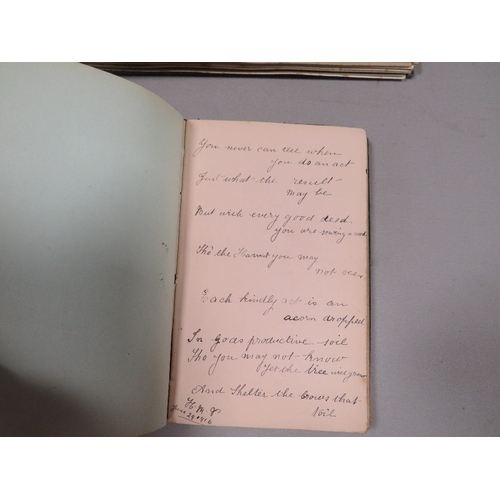 You never can tell when
you do an act
Just what the result
may be
But with every good deed
you are sowing a seed
Tho' the Harvest you may
not see.
Each kindly act is an
acorn dropped
In Gods productive soil
Tho You may not know
Yet the tree
And Shelter the brows that
toil
H. M.
June 29th 1916